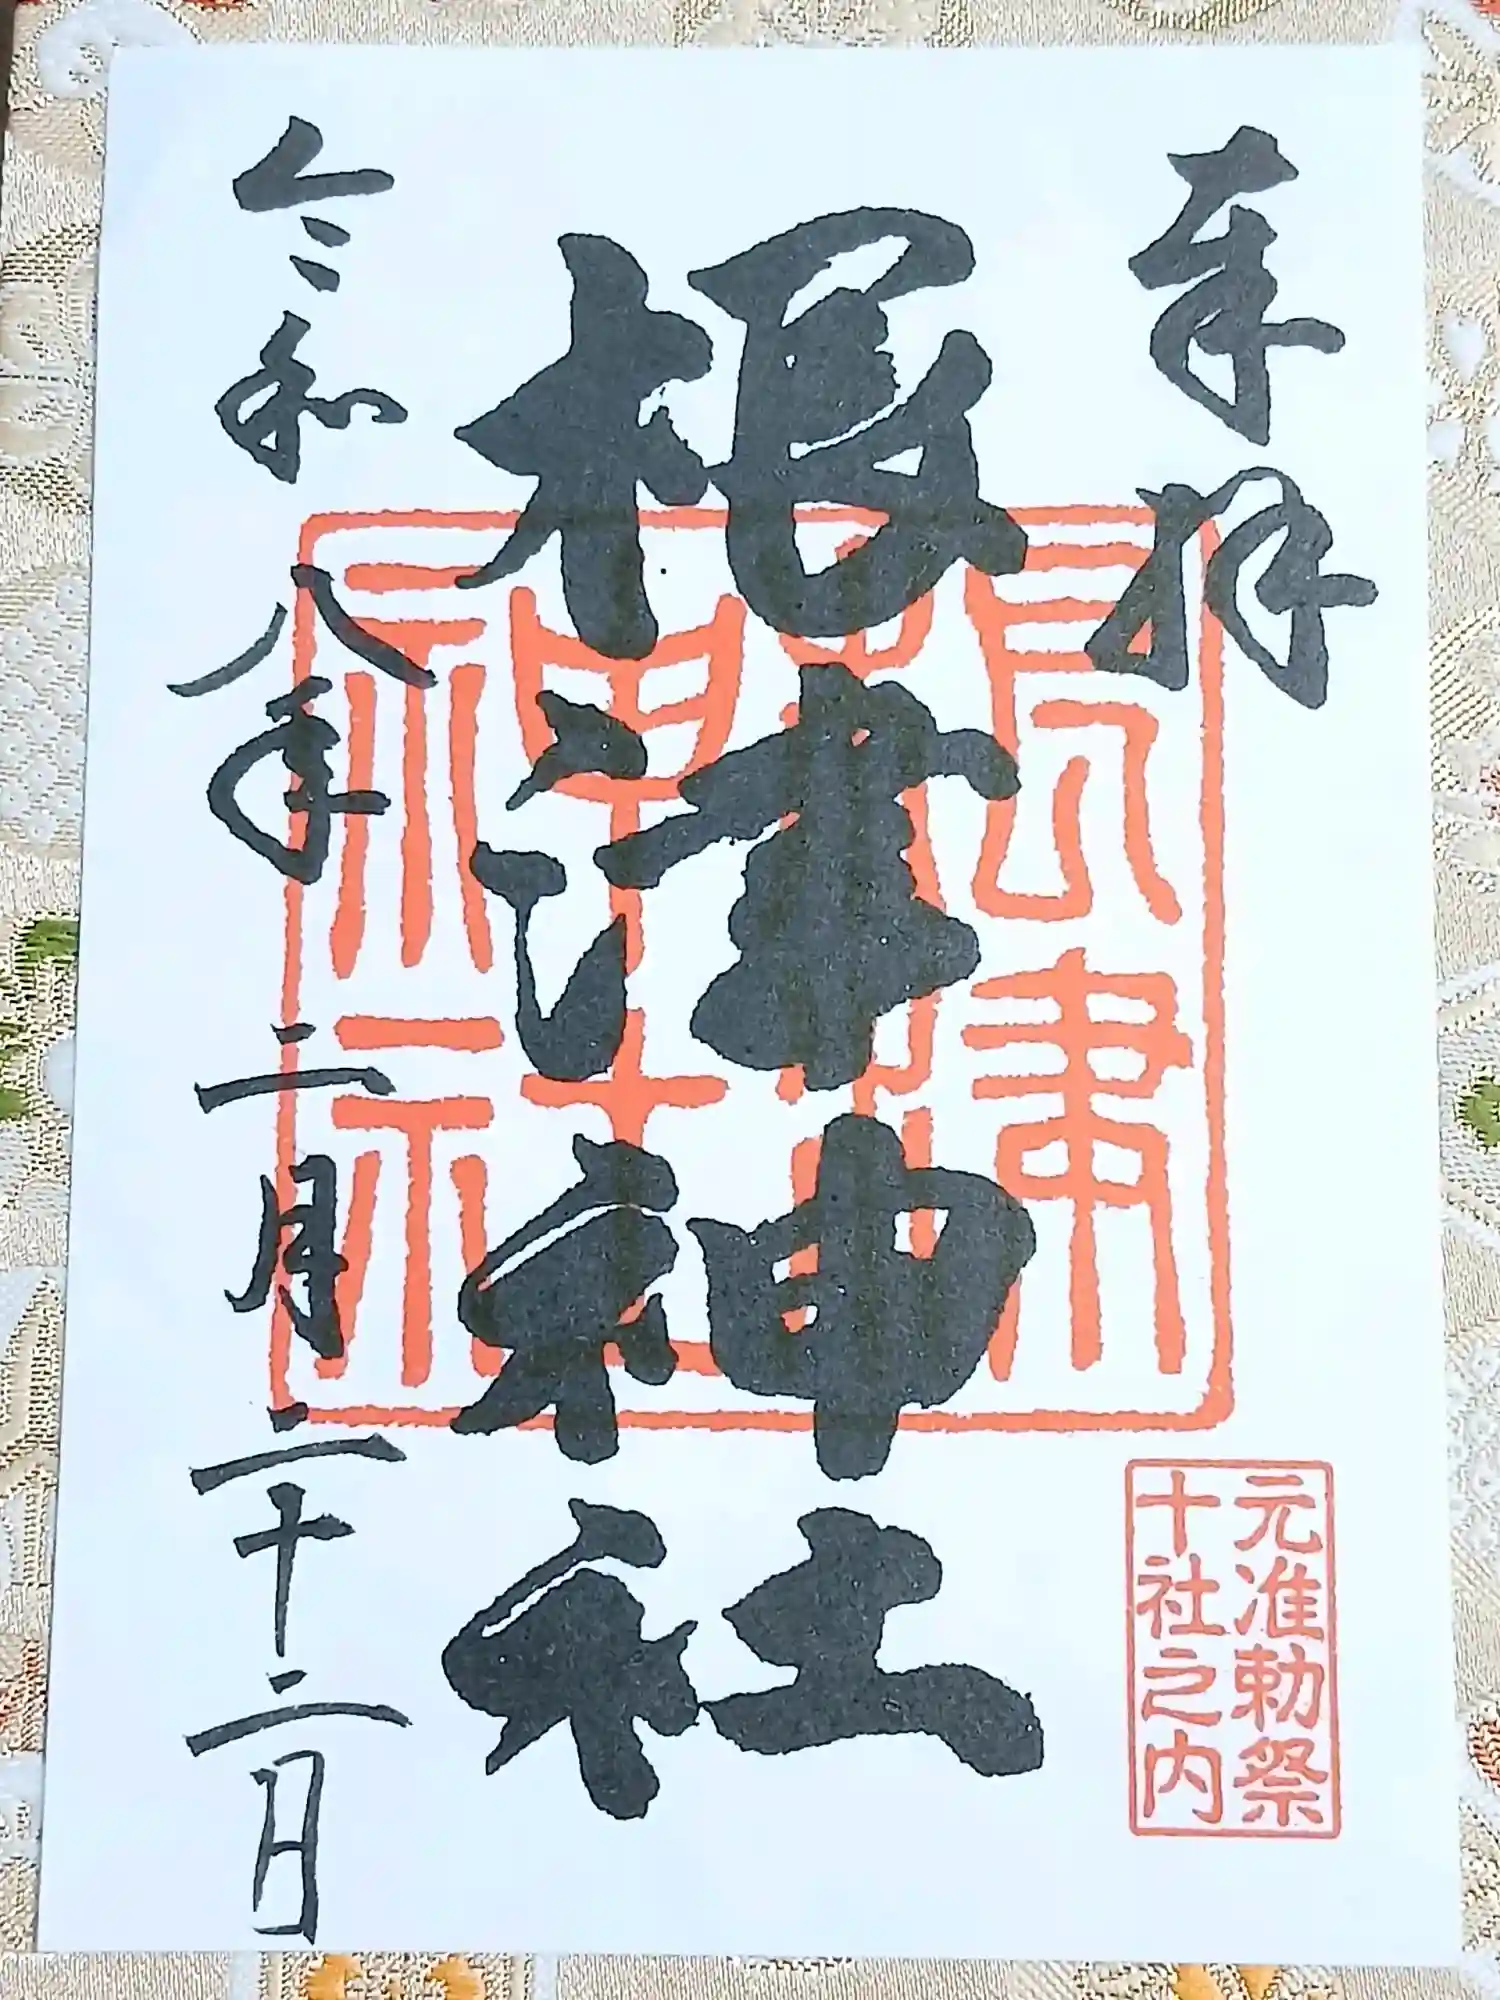 奉拝
元准勅祭
十社之内
根津神社
根津
神社
令和八年二月二十二日